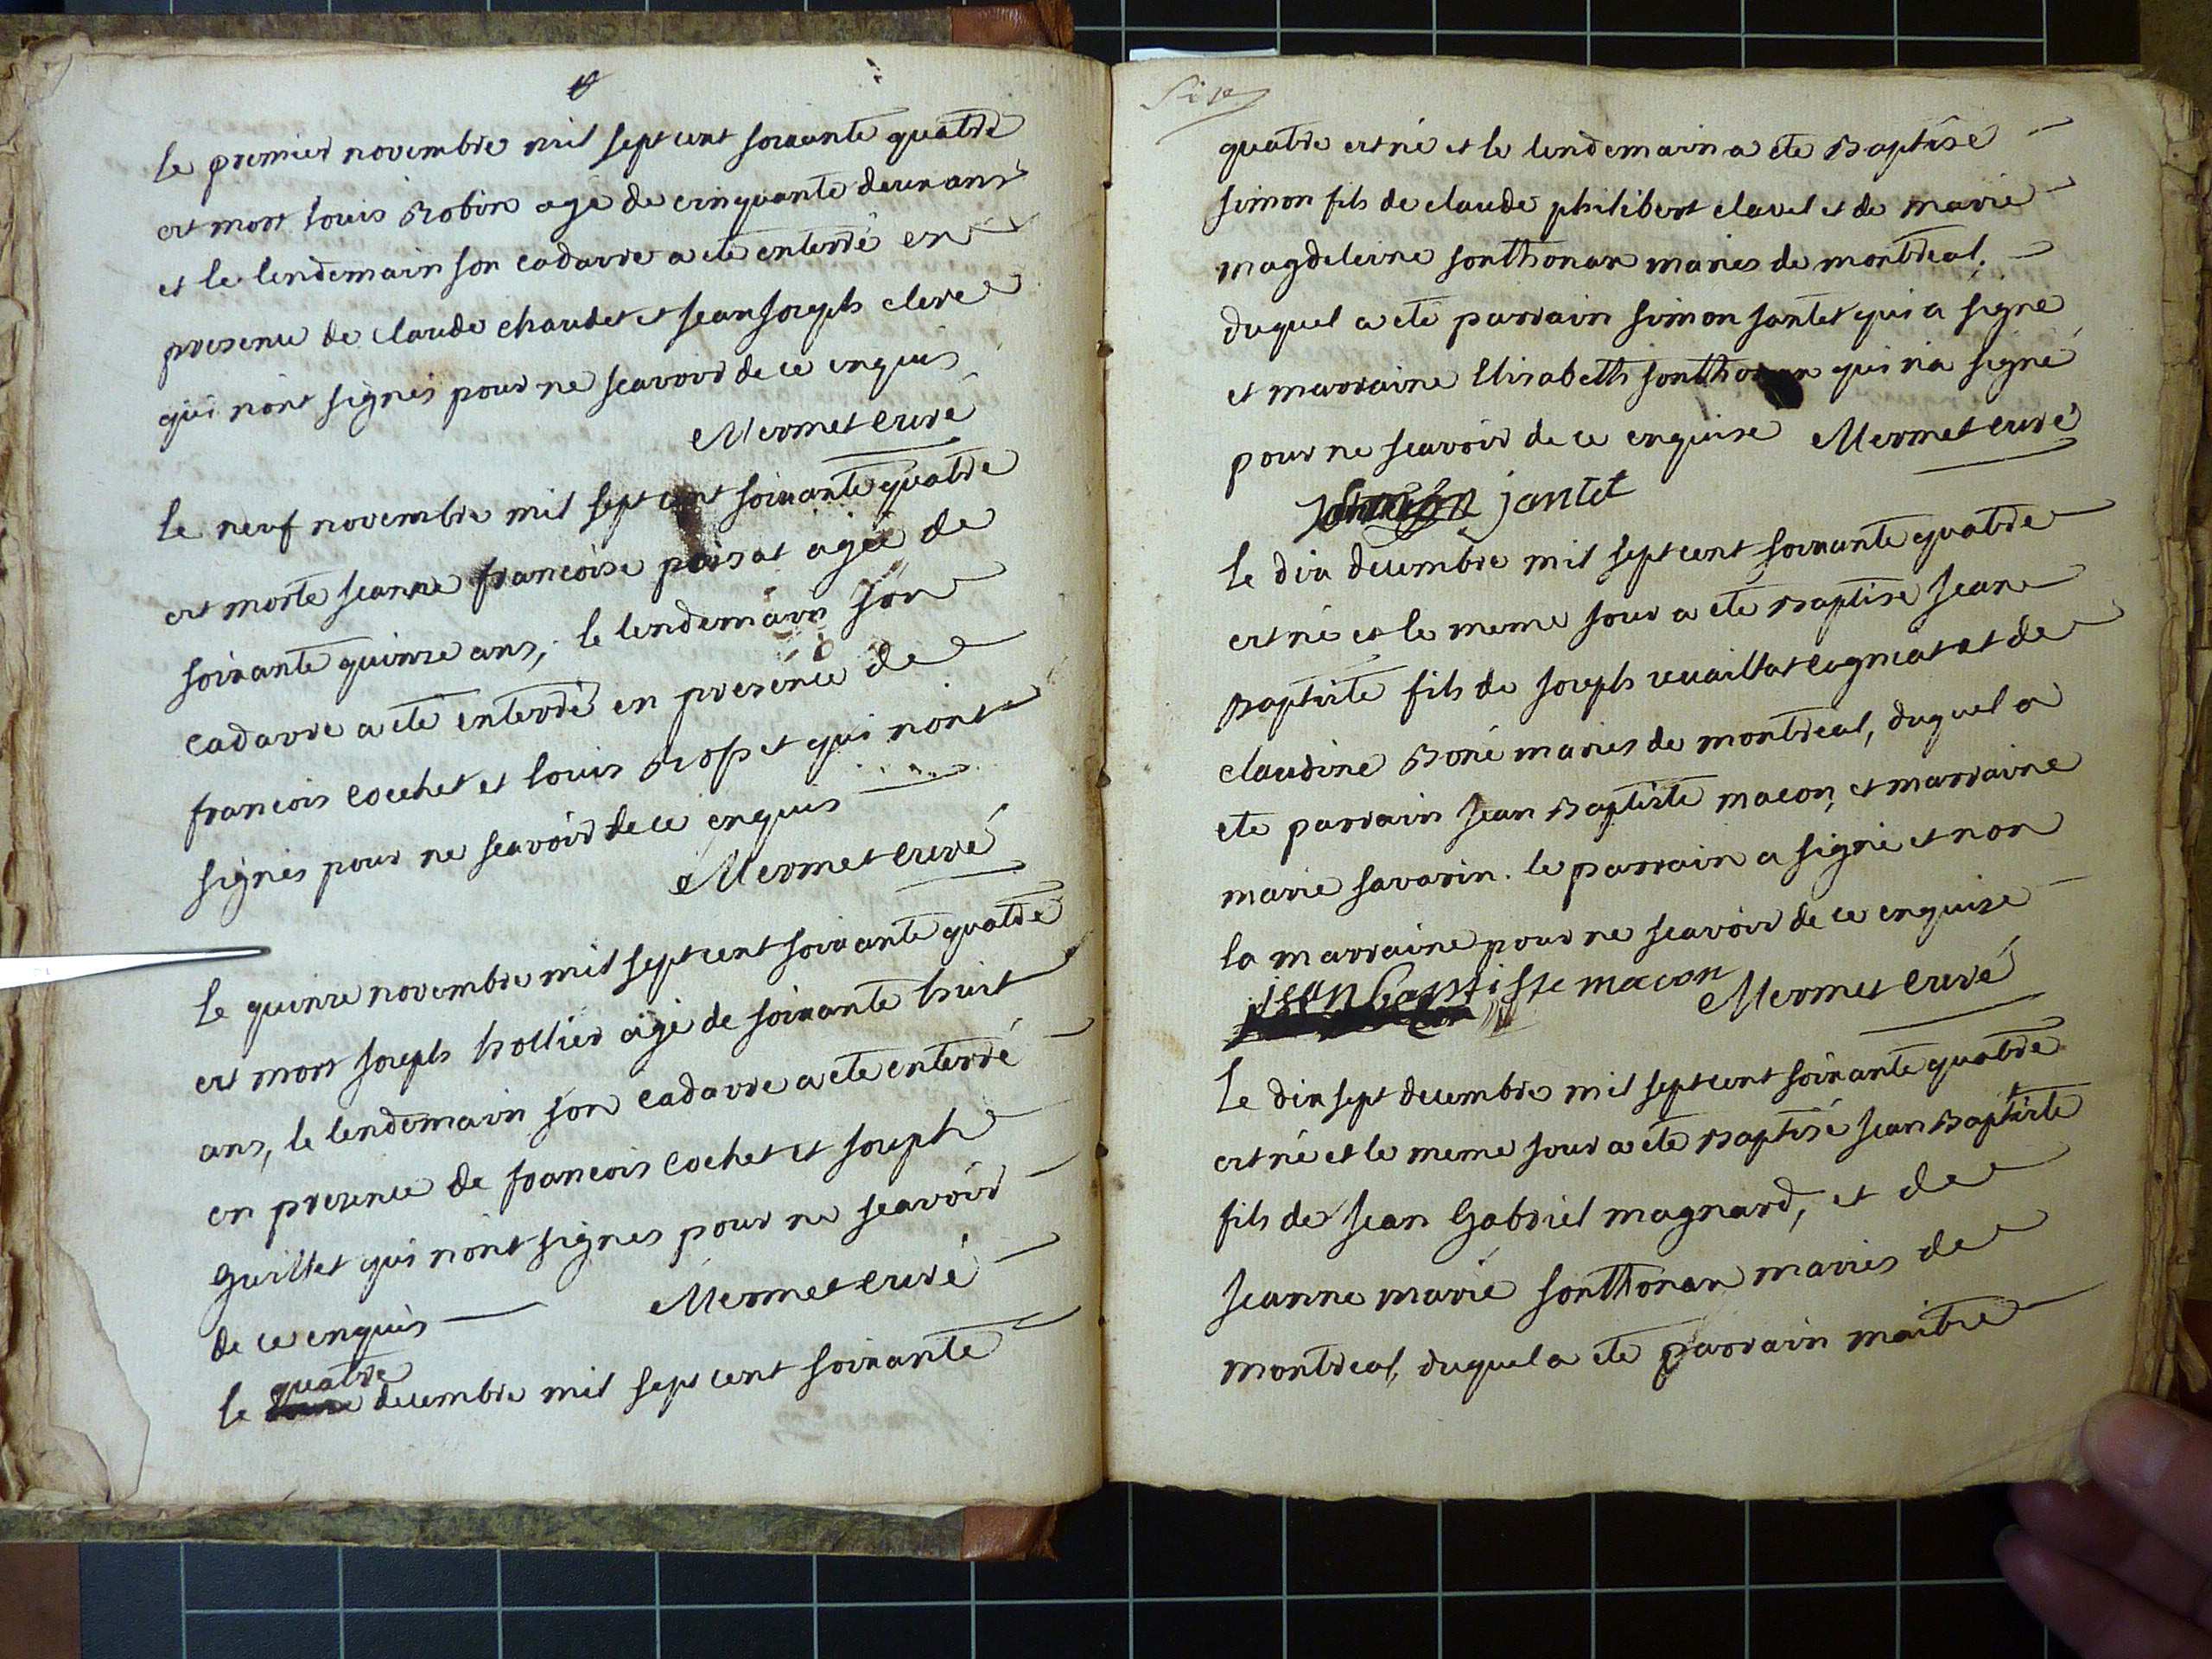 le premier novembre mil sept cent soixante quatre
est mort louis Robin agé de cinquante deux ans
et le lendemain son cadavre a eté enterré en
presence de claude chaudet et jean joseph clerc
qui n'ont signés pour ne scavoir de ce enquis
Mermet curé
le neuf novembre mil sept cent soixante quatre
est morte jeanne francoise poisat agée de
soixante quinze ans, le lendemain son
cadavre a eté enterré en presence de
francois cochet et louis Rosset qui n'ont
signés pour ne scavoir de ce enquis
Mermet curé
le quinze novembre mil sept cent soixante quatre
est mort joseph hottier agé de soixante huit
ans, le lendemain son cadavre a eté enterré
en presence de francois cochet et joseph
guillet qui n'ont signes pour ne scavoir
de ce enquis Mermet curé
quatre
le decembre mil sept cent soixante
quatre est né et le lendemain a ete Baptisé
simon fils de claude philibert clavel et de marie
magdeleine sonthonax mariés de montreal.
duquel a eté parrain simon jantet qui a signé
et marraine Elisabeth sonthonax qui n'a signé
pour ne scavoir de ce enquise Mermet curé
jantet
le dix decembre mil sept cent soixante quatre
est né et le meme jour a ete Baptisé jean
Baptiste fils de joseph vuaillat cogniat et de
claudine Boné mariés de montreal, duquel a
ete parrain jean Baptiste macon, et marraine
marie savarin. le parrain a signé et non
la marraine pour ne scavoir de ce enquise
jean Baptiste macon Mermet curé
le dix sept decembre mil sept cent soixante quatre
est né et le meme jour a ete Baptisé jean Baptiste
fils de jean Gabriel magnard, et de
jeanne marie sonthonax mariés de
montreal, duquel a ete parrain maitre